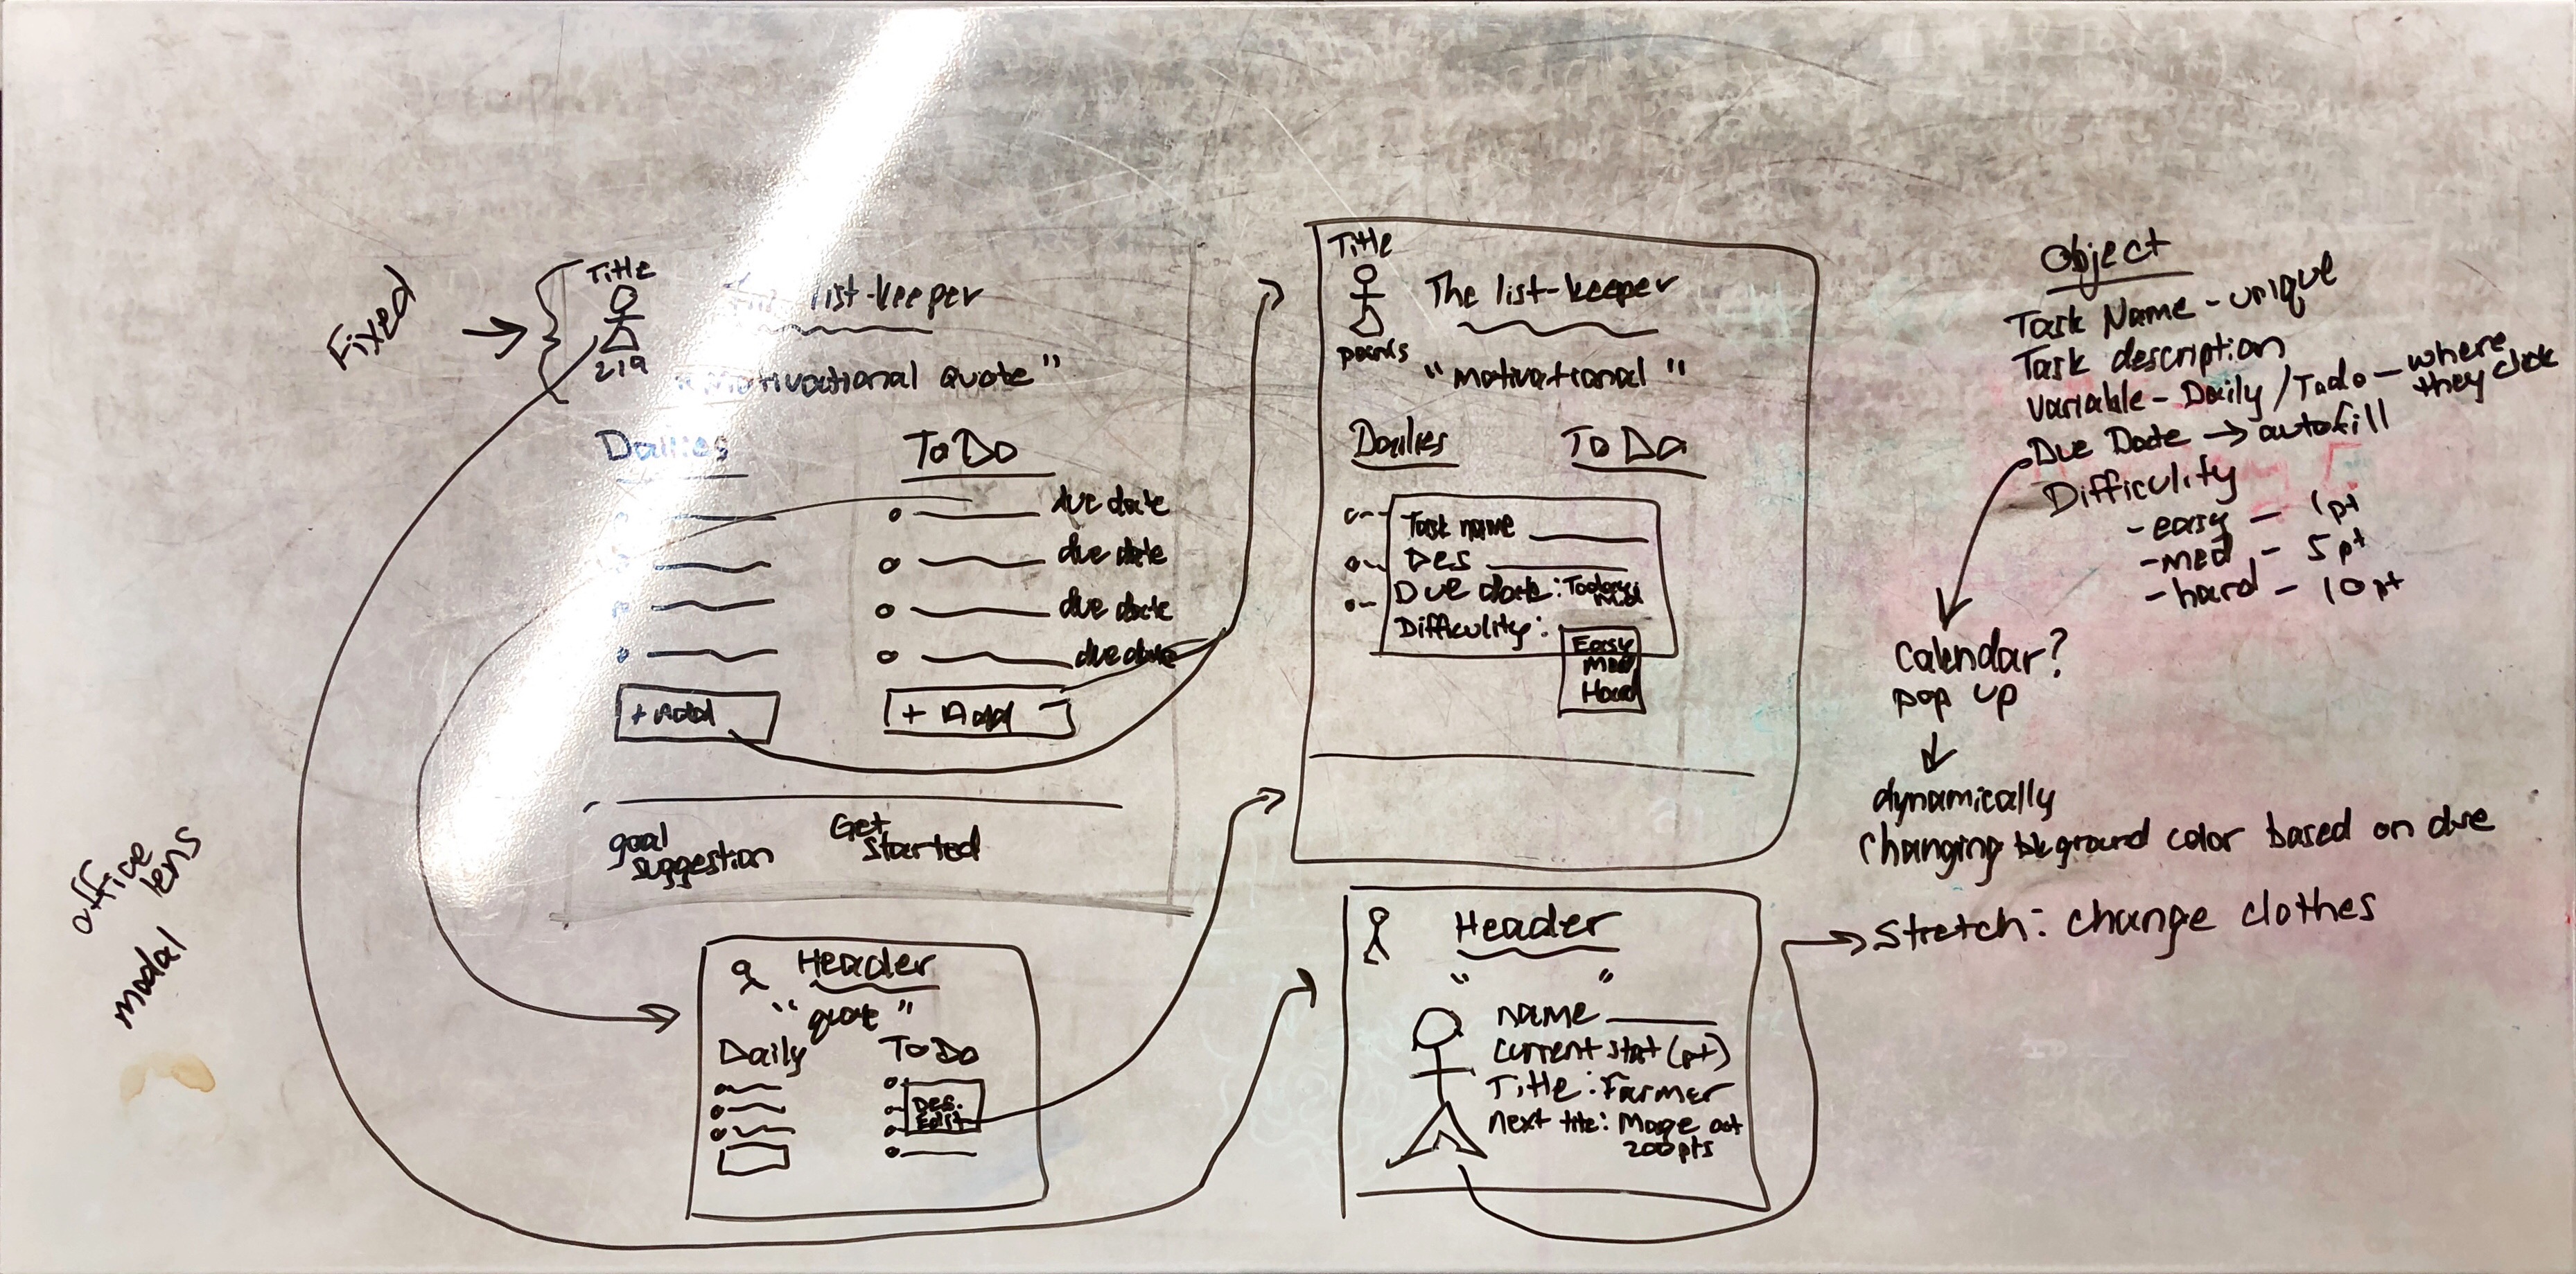 Fixed
Title
The list-keeper
219
"Motivational Quote"
Dailies
To Do
due date
due date
due date
due date
+ Add
+ Add
goal
suggestion
Get
Started
office
lens
modal
Title
The list-keeper
points
"motivational"
Dailies
To Do
Task name
Des
Due date: Today
Difficulity:
Easy
Med
Hard
Header
"quote"
Daily
To Do
Des.
Edit
Header
" "
name
current stat (pt)
Title: Farmer
next title: Mage at
200 pts
Object
Task Name - unique
Task description
Variable - Daily / Todo - where
they click
Due Date → autofill
Difficulity
- easy - 1 pt
- med - 5 pt
- hard - 10 pt
Calendar?
pop up
dynamically
Changing bkground color based on due
Stretch: change clothes